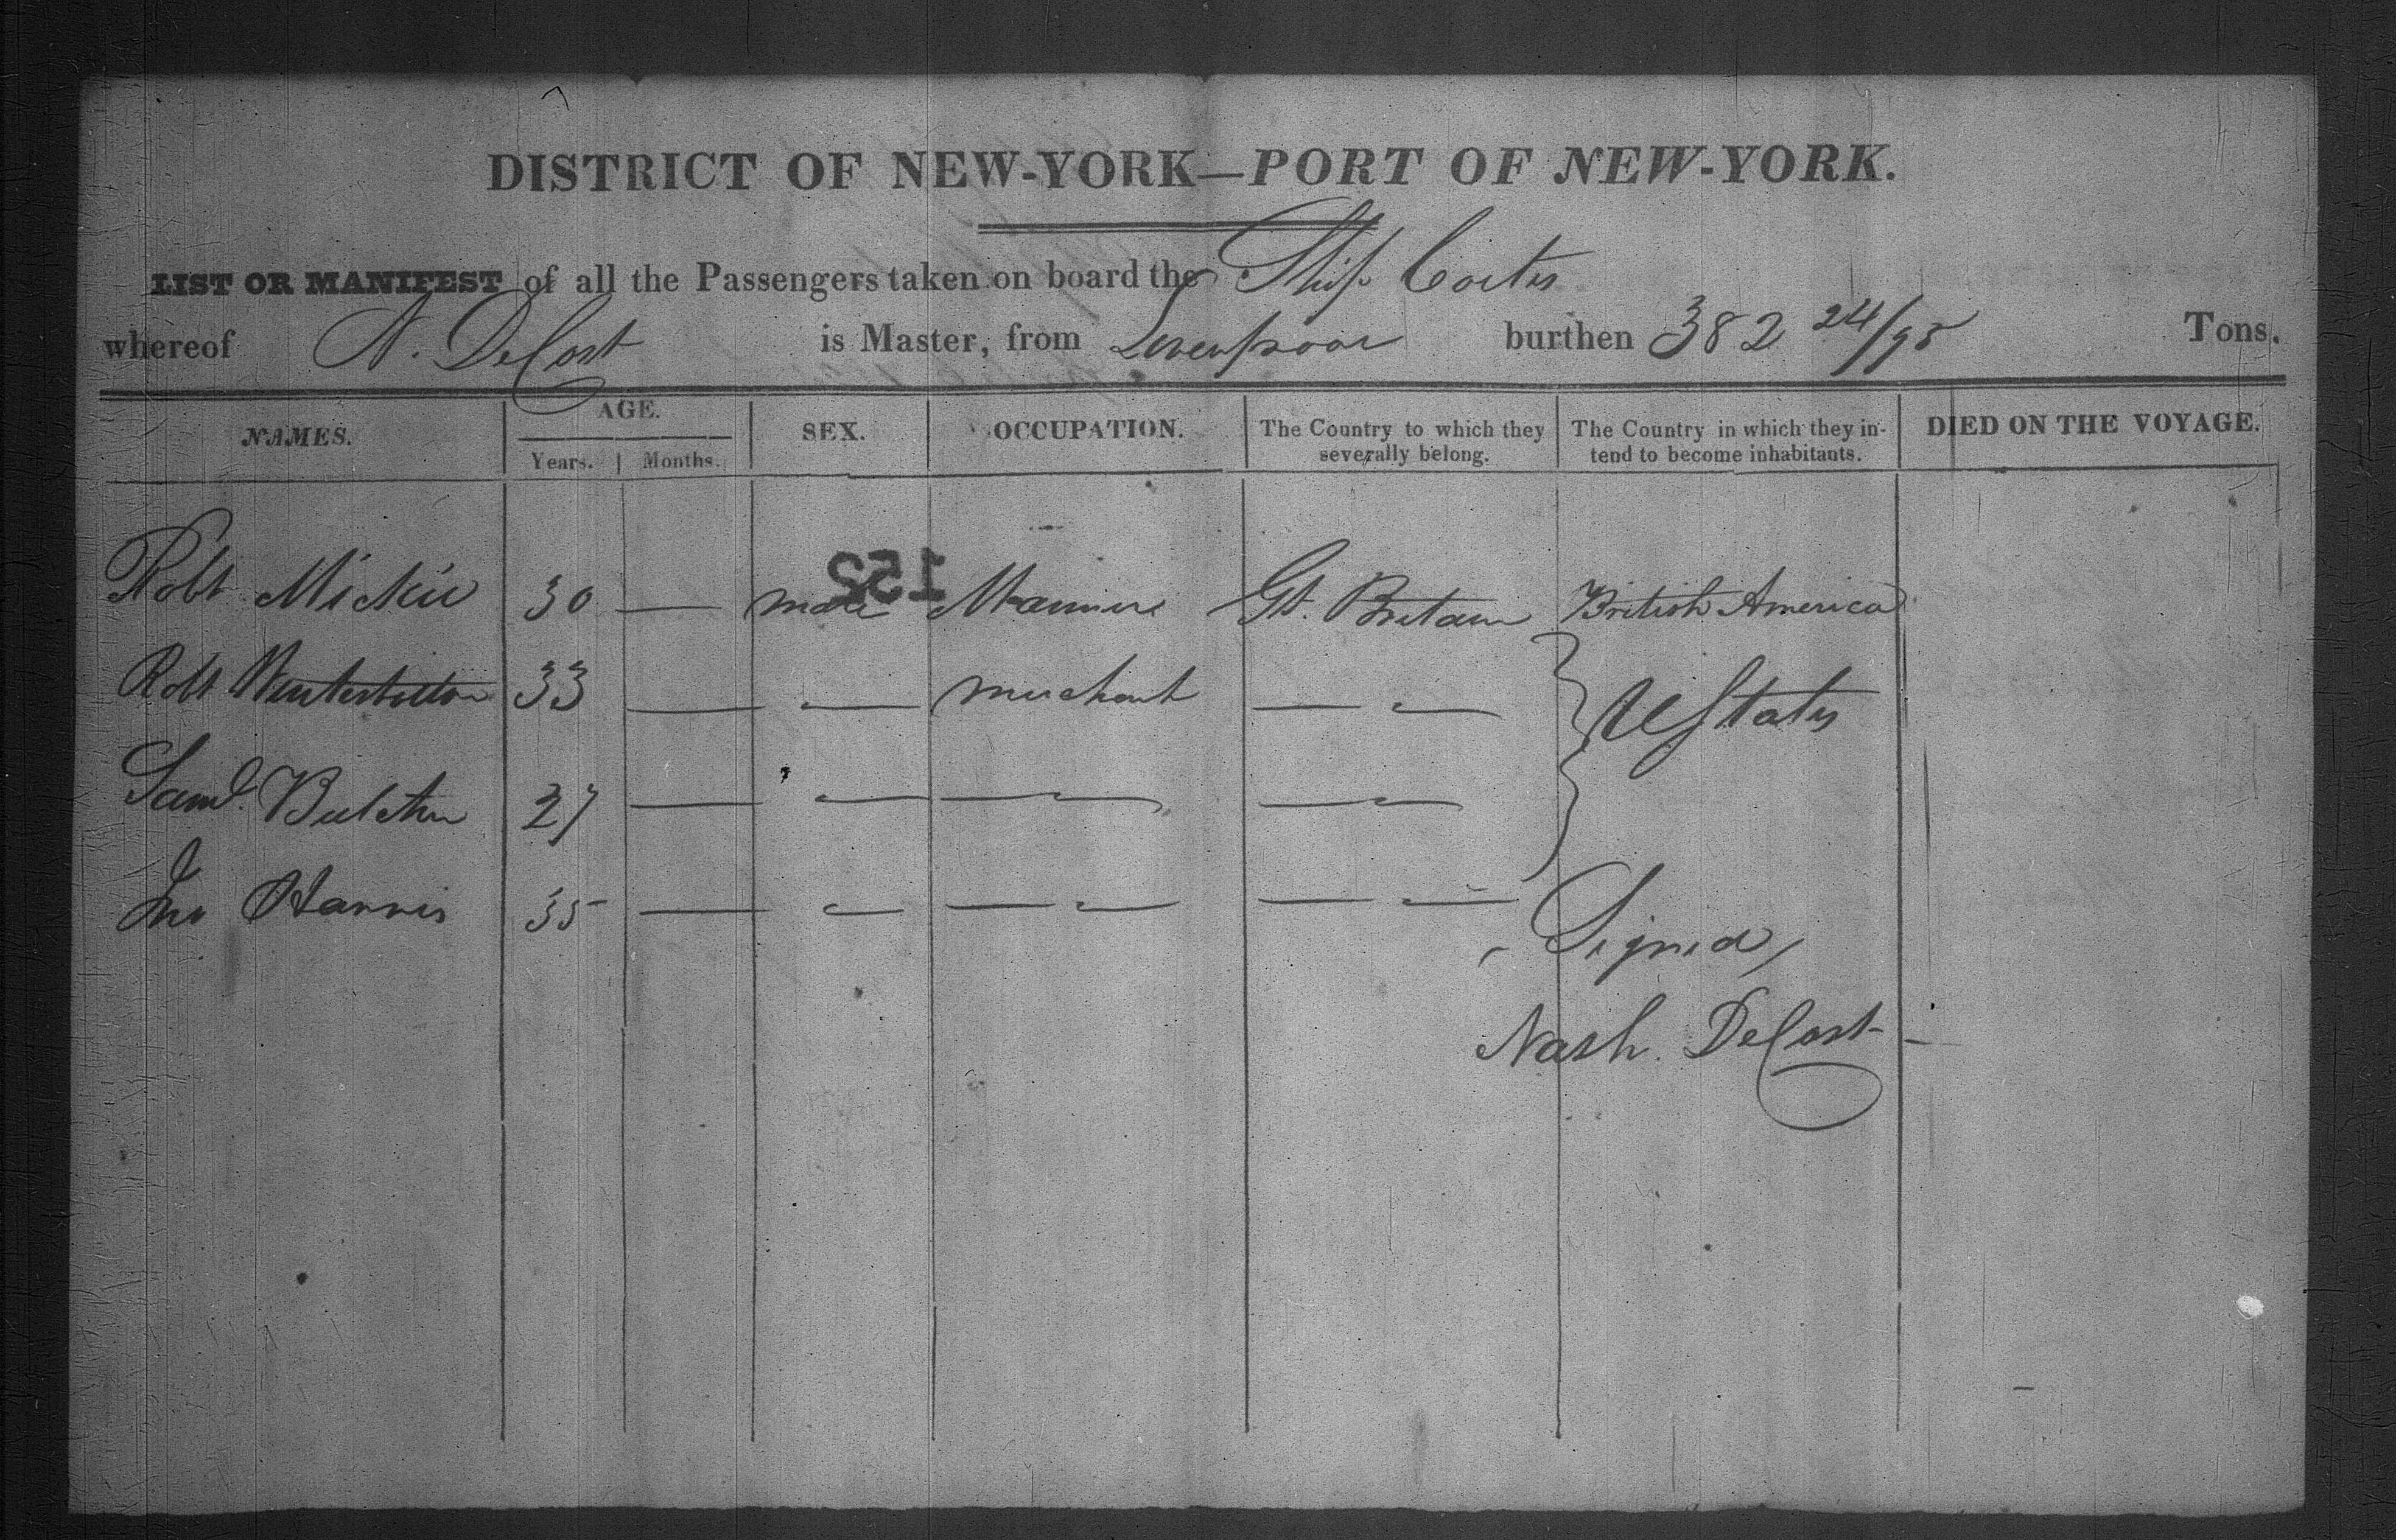 DISTRICT OF NEW-YORK—PORT OF NEW-YORK.
LIST OR MANIFEST of all the Passengers taken on board the Ship Cortes
whereof N. DeCost is Master, from Liverpool burthen 382 24/95 Tons.
NAMES. AGE. SEX. OCCUPATION. The Country to which they severally belong. The Country in which they intend to become inhabitants. DIED ON THE VOYAGE.
Years. Months.
152
Robt Mickie 30 — male Mariner Gt. Britain British America
Robt Winterbotton 33 — — merchant — — UStates
Saml. 27 — — — — — —
Jno Harris 35 — — — — — —
Signed
Nash. DeCost